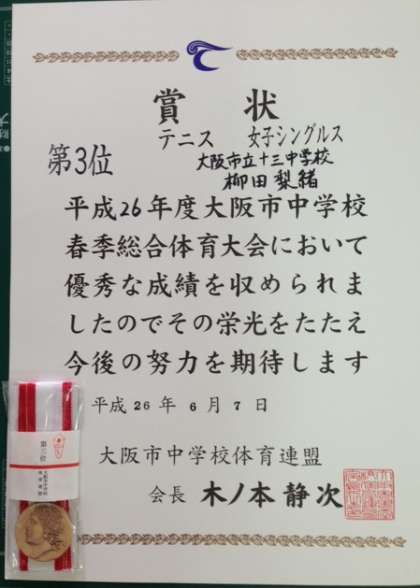 賞 状
テニス 女子シングルス
第3位
大阪市立十三中学校
柳田梨緒
平成26年度大阪市中学校
春季総合体育大会において
優秀な成績を収められま
したのでその栄光をたたえ
今後の努力を期待します
平成 26 年 6 月 7 日
大阪市中学校体育連盟
会長 木ノ本静次